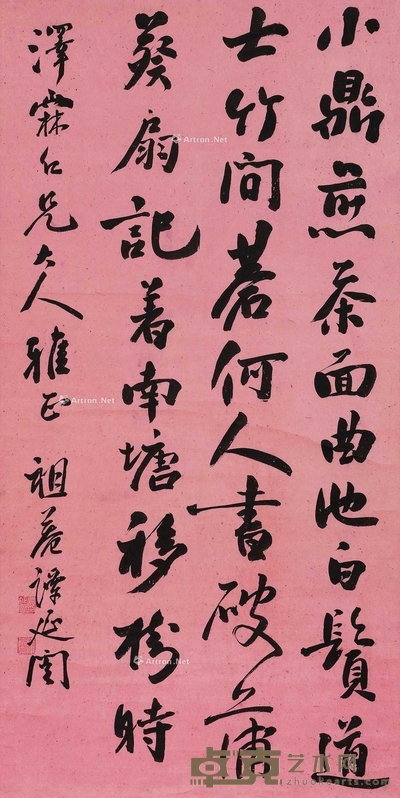 小鼎煎茶面曲池白鬚道
士竹間碁何人書破蒲
葵扇記着南塘移樹時
澤霖仁兄大人雅正 祖菴譚延闓
Artron.Net
Artron.Net
Artron.Net
Artron.Net
卓克艺术网
zhuokearts.com